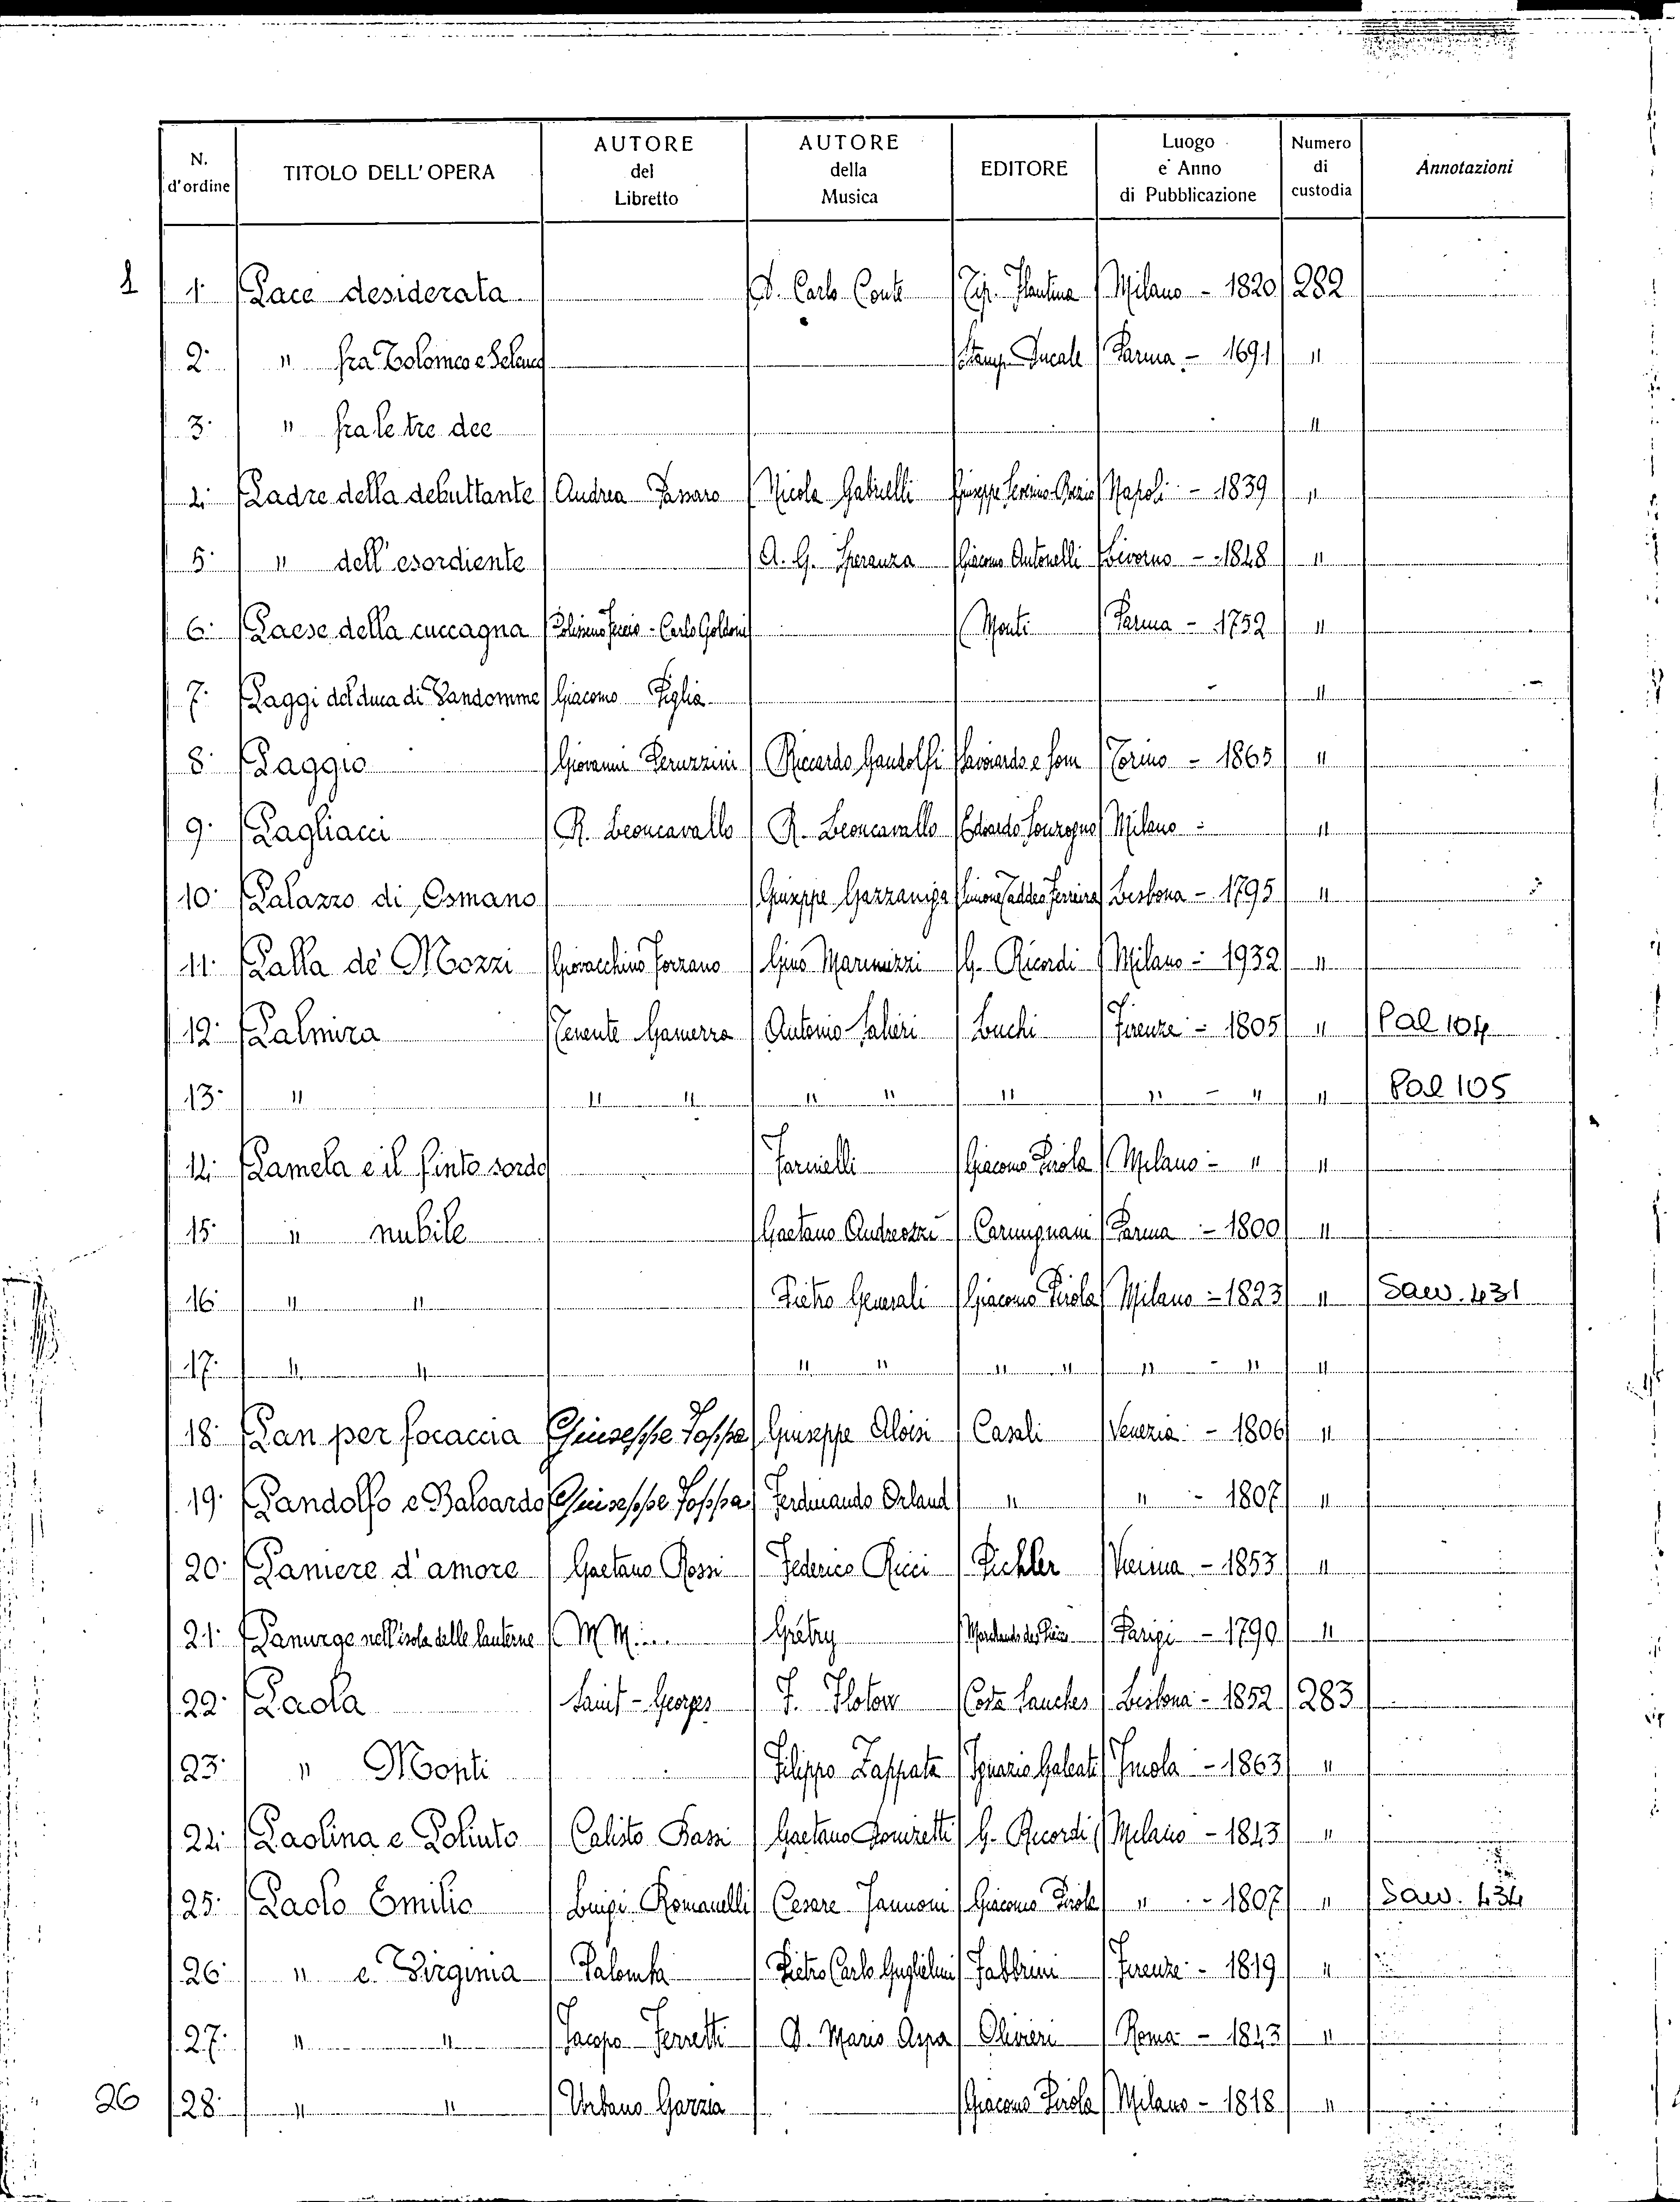 N. d'ordine TITOLO DELL'OPERA AUTORE del Libretto AUTORE della Musica EDITORE Luogo e Anno di Pubblicazione Numero di custodia Annotazioni
1 1. Pace desiderata D. Carlo Conti Tip. Plantina Milano - 1820 282
2. " fra Tolomeo e Seleuco Stamp. Ducale Parma - 1691 "
3. " fra le tre dee "
4. Padre della debuttante Andrea Passaro Nicola Gabrielli Giuseppe Severino Napoli - 1839 "
5. " dell'esordiente A. G. Speranza Giacomo Antonelli Livorno - 1848 "
6. Paese della cuccagna Polisseno Fegeio - Carlo Goldoni Monti Parma - 1752 "
7. Paggi del duca di Vandomme Giacomo Piglia "
8. Paggio Giovanni Peruzzini Riccardo Gandolfi Savoiardo e som Torino - 1865 "
9. Pagliacci R. Leoncavallo R. Leoncavallo Edoardo Sonzogno Milano - "
10. Palazzo di Osmano Giuseppe Gazzaniga Simone Taddeo Ferreira Lisbona - 1795 "
11. Palla de' Mozzi Giovacchino Forzano Gino Marinuzzi G. Ricordi Milano - 1932 "
12. Palmira Tenente Gamerra Antonio Salieri Luchi Firenze - 1805 " Pal 104
13. " " " " " " " - " " Pal 105
14. Pamela e il finto sordo Farinelli Giacomo Pirola Milano - " "
15. " nubile Gaetano Andreozzi Carmignani Parma - 1800 "
16. " " Pietro Generali Giacomo Pirola Milano - 1823 " Saw. 431
17. " " " " " " " - " "
18. Pan per focaccia Giuseppe Foppa Giuseppe Aloisi Casali Venezia - 1806 "
19. Pandolfo e Baloardo Giuseppe Foppa Ferdinando Orland " " - 1807 "
20. Paniere d'amore Gaetano Rossi Federico Ricci Pichler Vienna - 1853 "
21. Panurge nell'isola delle lanterne M M.... Grétry Marchands de Pièces Parigi - 1790 "
22. Paola Saint-Georges F. Flotow Costa Sanches Lisbona - 1852 283
23. " Monti Filippo Zappata Ignazio Galeati Imola - 1863 "
24. Paolina e Poliuto Calisto Bassi Gaetano Donizetti G. Ricordi Milano - 1843 "
25. Paolo Emilio Luigi Romanelli Cesare Jannoni Giacomo Pirola " - 1807 " Saw. 434
26. " e Virginia Palomba Pietro Carlo Guglielmi Fabbrini Firenze - 1819 "
27. " " Jacopo Ferretti D. Mario Aspa Olivieri Roma - 1843 "
26 28. " " Urbano Garzia Giacomo Pirola Milano - 1818 "